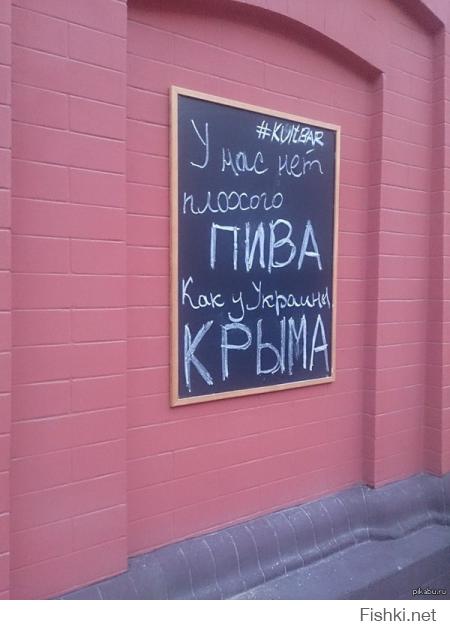 #KULTBAR
У нас нет
плохого
ПИВА
Как у Украины
КРЫМА
pikabu.ru
Fishki.net